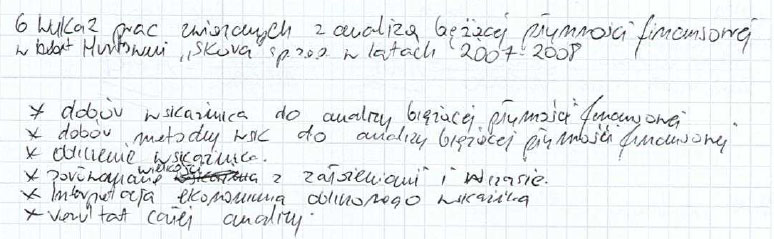 6 Wykaz prac związanych z analizą bężącej płynności finansowej
w Hurtowni „Skóra" sp. z o.o. w latach 2007-2008
* dobór wskaźnica do analizy bieżącej płynności finansowej
* dobór metody wsk do analizy bieżącej płynności finansowej
* obliczenie wskaźnica.
* porównanie wielkości z założeniami i w czasie.
* Interpretacja ekonomiczna obliczonego wskaźnika
* rezultat całej analizy.